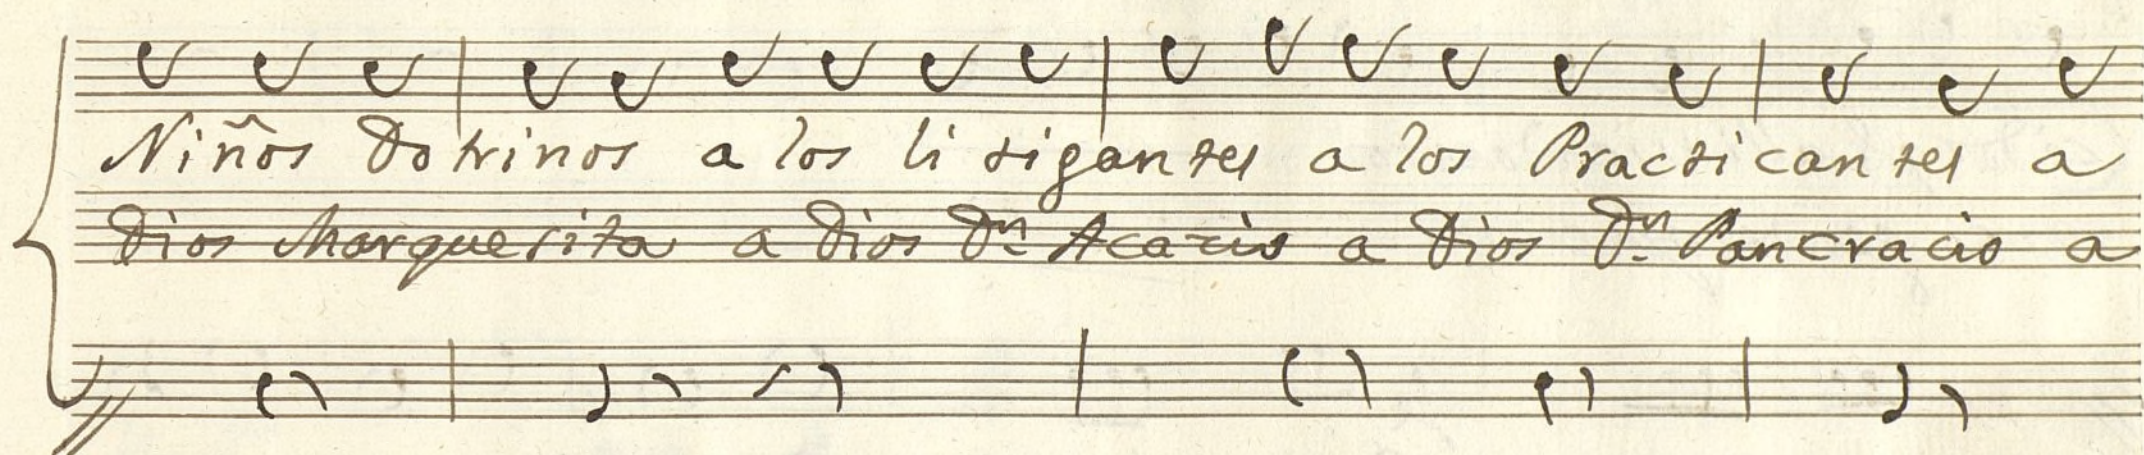 Niños Dotrinos a los li tigantes a los Practi can tes a
Dios Marquesita a Dios Dn Acacio a Dios Dn Pancracio a